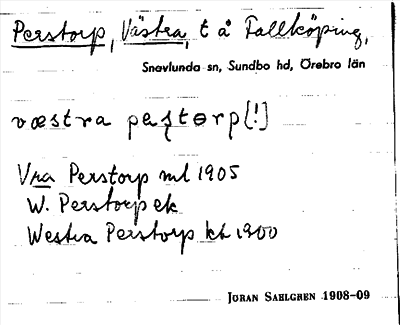 Perstorp, Västra, t å Tallköping,
Snavlunda sn, Sundbo hd, Örebro län
væstra pæʂtɵrp [!]
Vra Perstorp ml 1905
W. Perstorp ek
Westra Perstorp kb 1900
JÖRAN SAHLGREN 1908-09